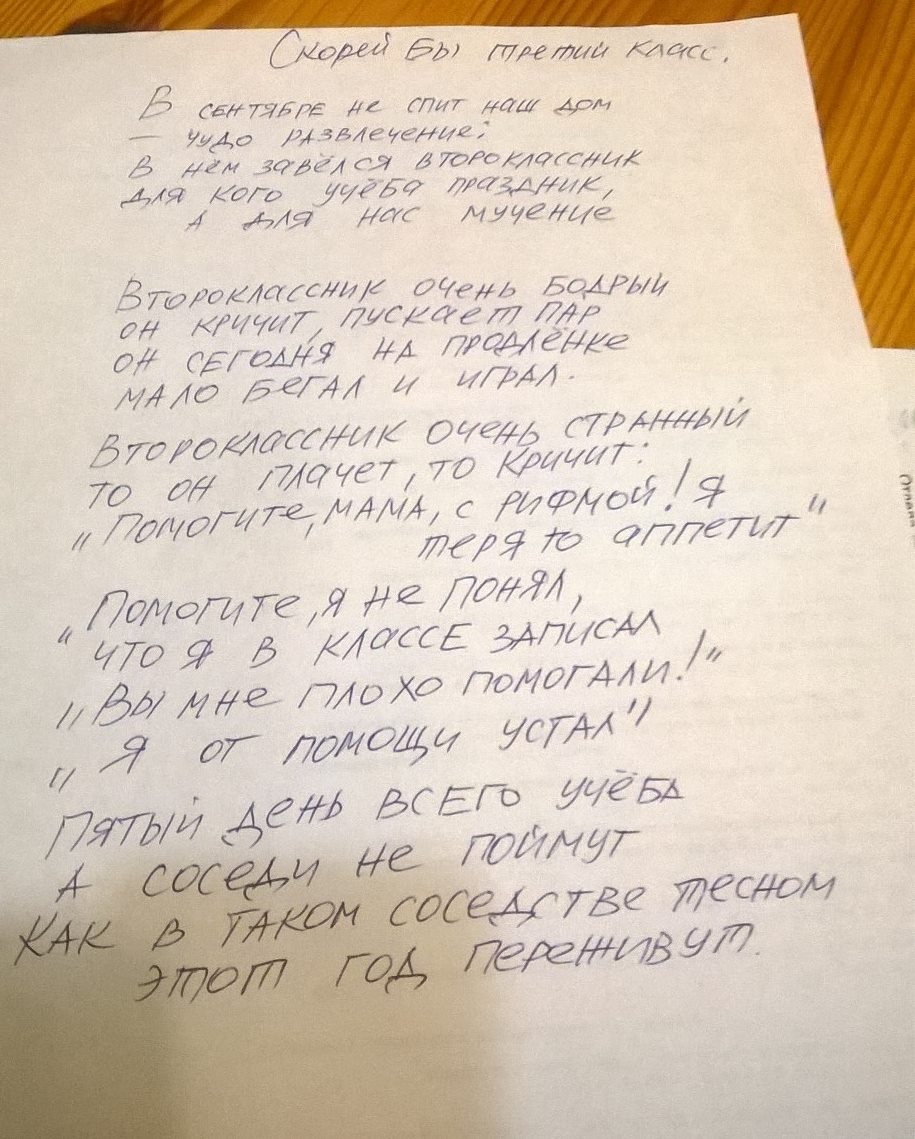 Скорей бы третий класс.
В сентябре не спит наш дом
– чудо развлечение:
в нём завёлся второклассник
для кого учёба праздник,
а для нас мучение
Второклассник очень бодрый
он кричит, пускает пар
он сегодня на продлёнке
мало бегал и играл.
Второклассник очень странный
то он плачет, то кричит:
„Помогите, мама, с рифмой! Я
теряю аппетит"
„Помогите, я не понял,
что я в классе записал
„Вы мне плохо помогали!"
„Я от помощи устал"
Пятый день всего учёба
А соседи не поймут
Как в таком соседстве тесном
этот год переживут.